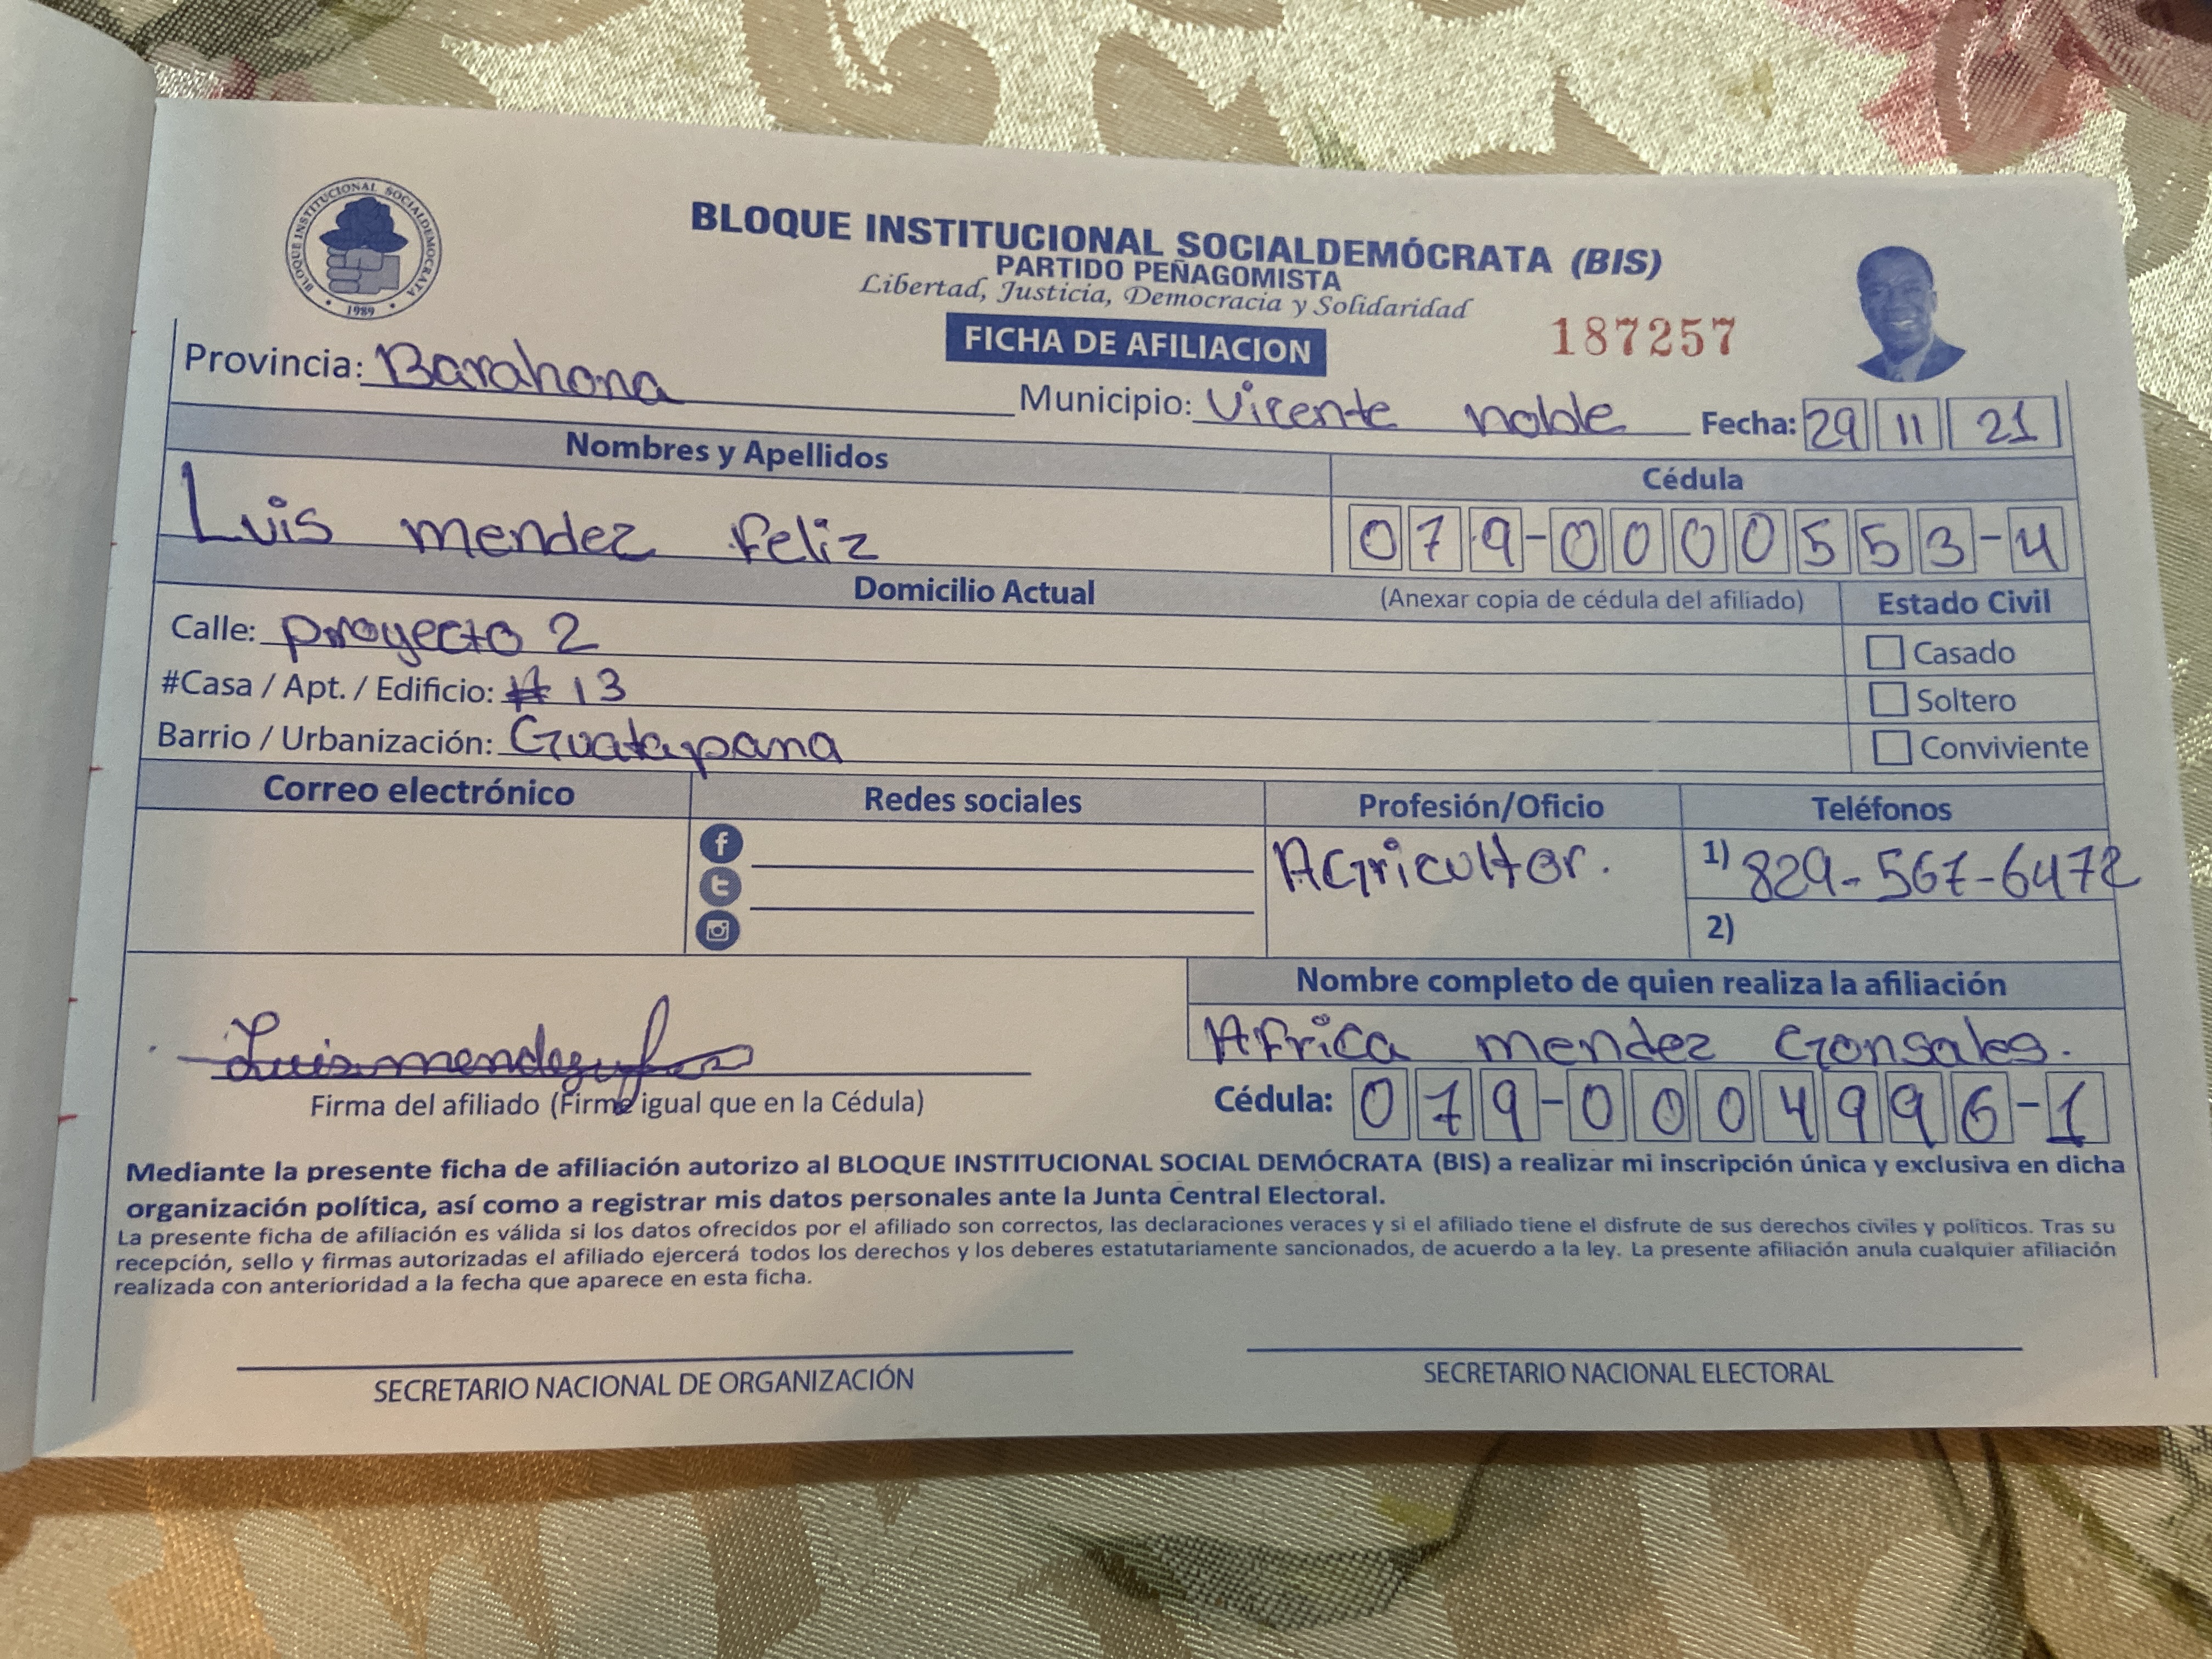 BLOQUE INSTITUCIONAL SOCIALDEMOCRATA
1989
BLOQUE INSTITUCIONAL SOCIALDEMÓCRATA (BIS)
PARTIDO PEÑAGOMISTA
Libertad, Justicia, Democracia y Solidaridad
FICHA DE AFILIACION
187257
Provincia: Barahona Municipio: Vicente noble Fecha: 29 11 21
Nombres y Apellidos Cédula
Luis mendez feliz 079-0000553-4
Domicilio Actual (Anexar copia de cédula del afiliado) Estado Civil
Calle: proyecto 2 Casado
#Casa / Apt. / Edificio: #13 Soltero
Barrio / Urbanización: Guatapana Conviviente
Correo electrónico Redes sociales Profesión/Oficio Teléfonos
Agricultor. 1) 829-567-6472
2)
Nombre completo de quien realiza la afiliación
Africa mendez Gonsales.
Luis mendez
Firma del afiliado (Firme igual que en la Cédula) Cédula: 079-0004996-1
Mediante la presente ficha de afiliación autorizo al BLOQUE INSTITUCIONAL SOCIAL DEMÓCRATA (BIS) a realizar mi inscripción única y exclusiva en dicha
organización política, así como a registrar mis datos personales ante la Junta Central Electoral.
La presente ficha de afiliación es válida si los datos ofrecidos por el afiliado son correctos, las declaraciones veraces y si el afiliado tiene el disfrute de sus derechos civiles y políticos. Tras su
recepción, sello y firmas autorizadas el afiliado ejercerá todos los derechos y los deberes estatutariamente sancionados, de acuerdo a la ley. La presente afiliación anula cualquier afiliación
realizada con anterioridad a la fecha que aparece en esta ficha.
SECRETARIO NACIONAL DE ORGANIZACIÓN SECRETARIO NACIONAL ELECTORAL